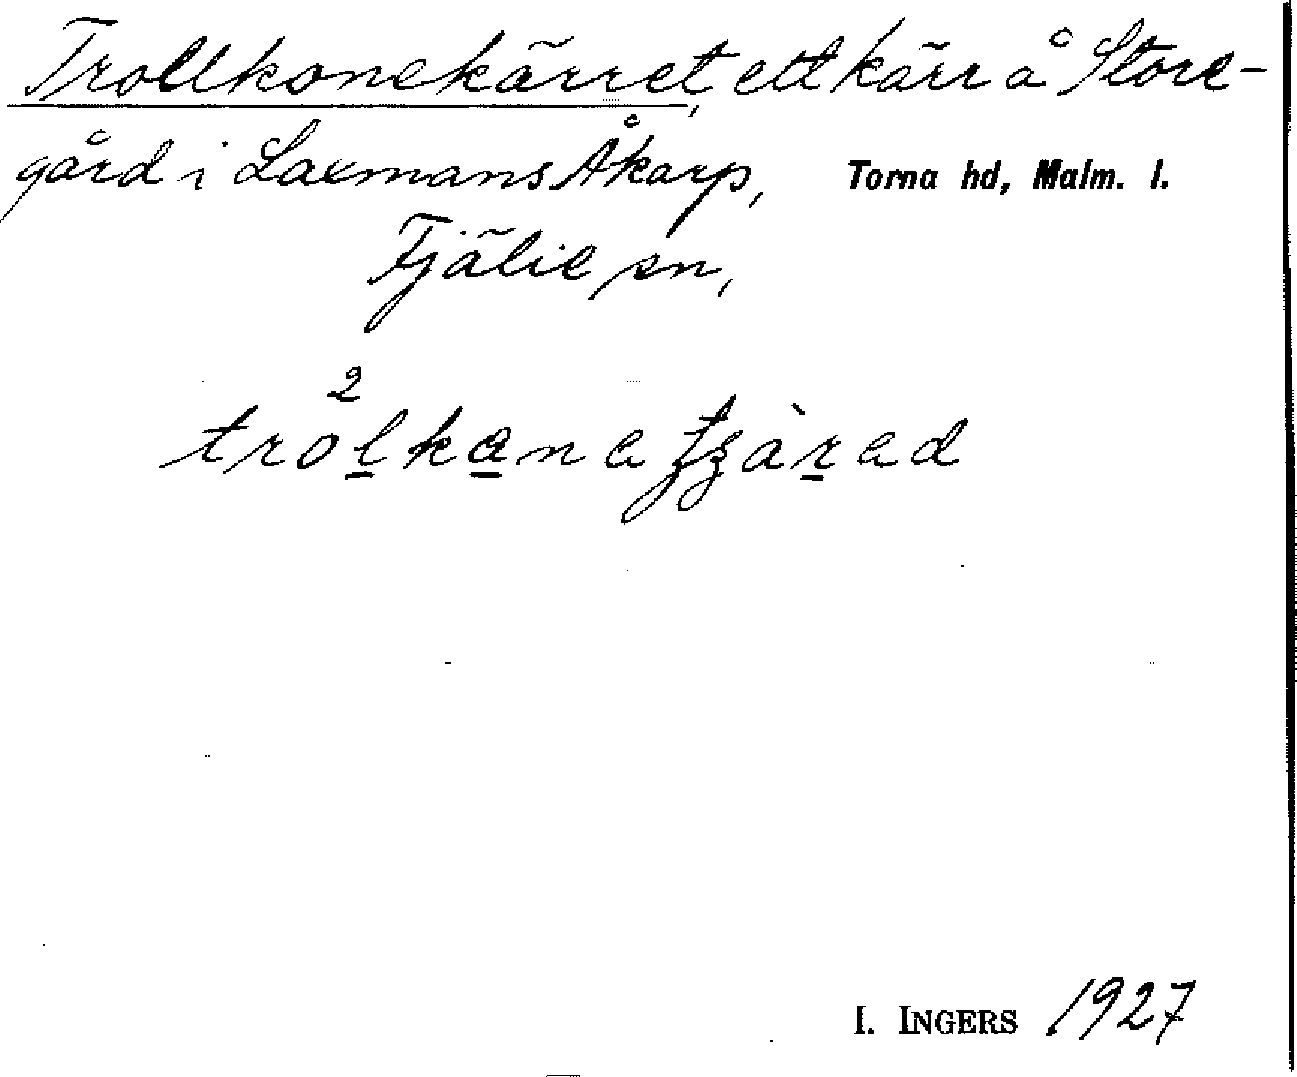 Trollkonekärret, ett kärr å Store-
gård i Laxmans Åkarp, Torna hd, Malm. l.
Fjälie sn,
I. INGERS 1927